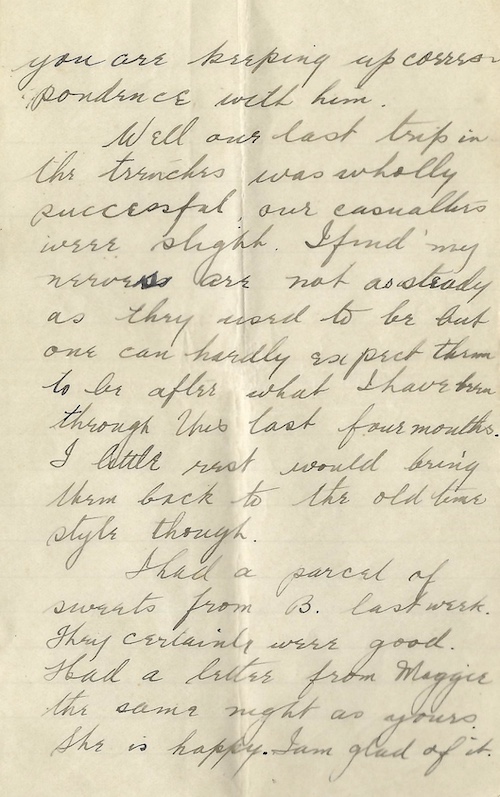 you are keeping up corres-
pondence with him.
Well our last trip in
the trenches was wholly
successful, our casualties
were slight. I find my
nerves are not as steady
as they used to be but
one can hardly expect them
to be after what I have been
through this last four months.
I little rest would bring
them back to the old time
style though.
I had a parcel of
sweets from B. last week.
They certainly were good.
Had a letter from Maggie
the same night as yours.
She is happy. I am glad of it.